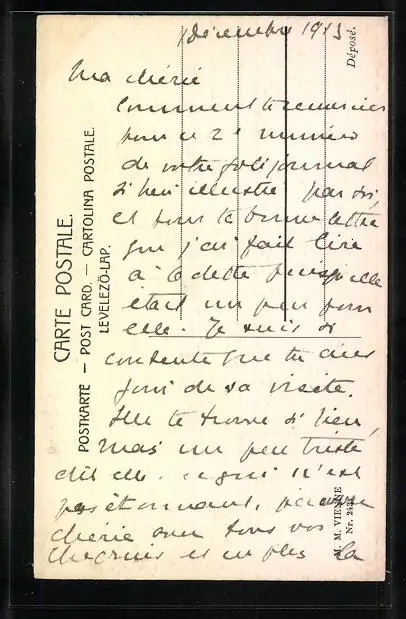 décembre 1913
Ma chérie
Comment te remercier
pour ce 2e numéro
de votre joli journal
si bien illustré par toi,
et pour ta bonne lettre
que j'ai fait lire
à Odette puisqu'elle
était un peu pour
elle. Je suis si
contente que tu aies
joui de sa visite.
Elle te trouve si bien,
mais un peu triste
dit-elle. ce qui n'est
pas étonnant, pauvre
chérie avec tous vos
chagrins et en plus la
Déposé.
CARTE POSTALE.
POSTKARTE – POST CARD. – CARTOLINA POSTALE.
LEVELEZŐ-LAP.
M. M. VIENNE
Nr.